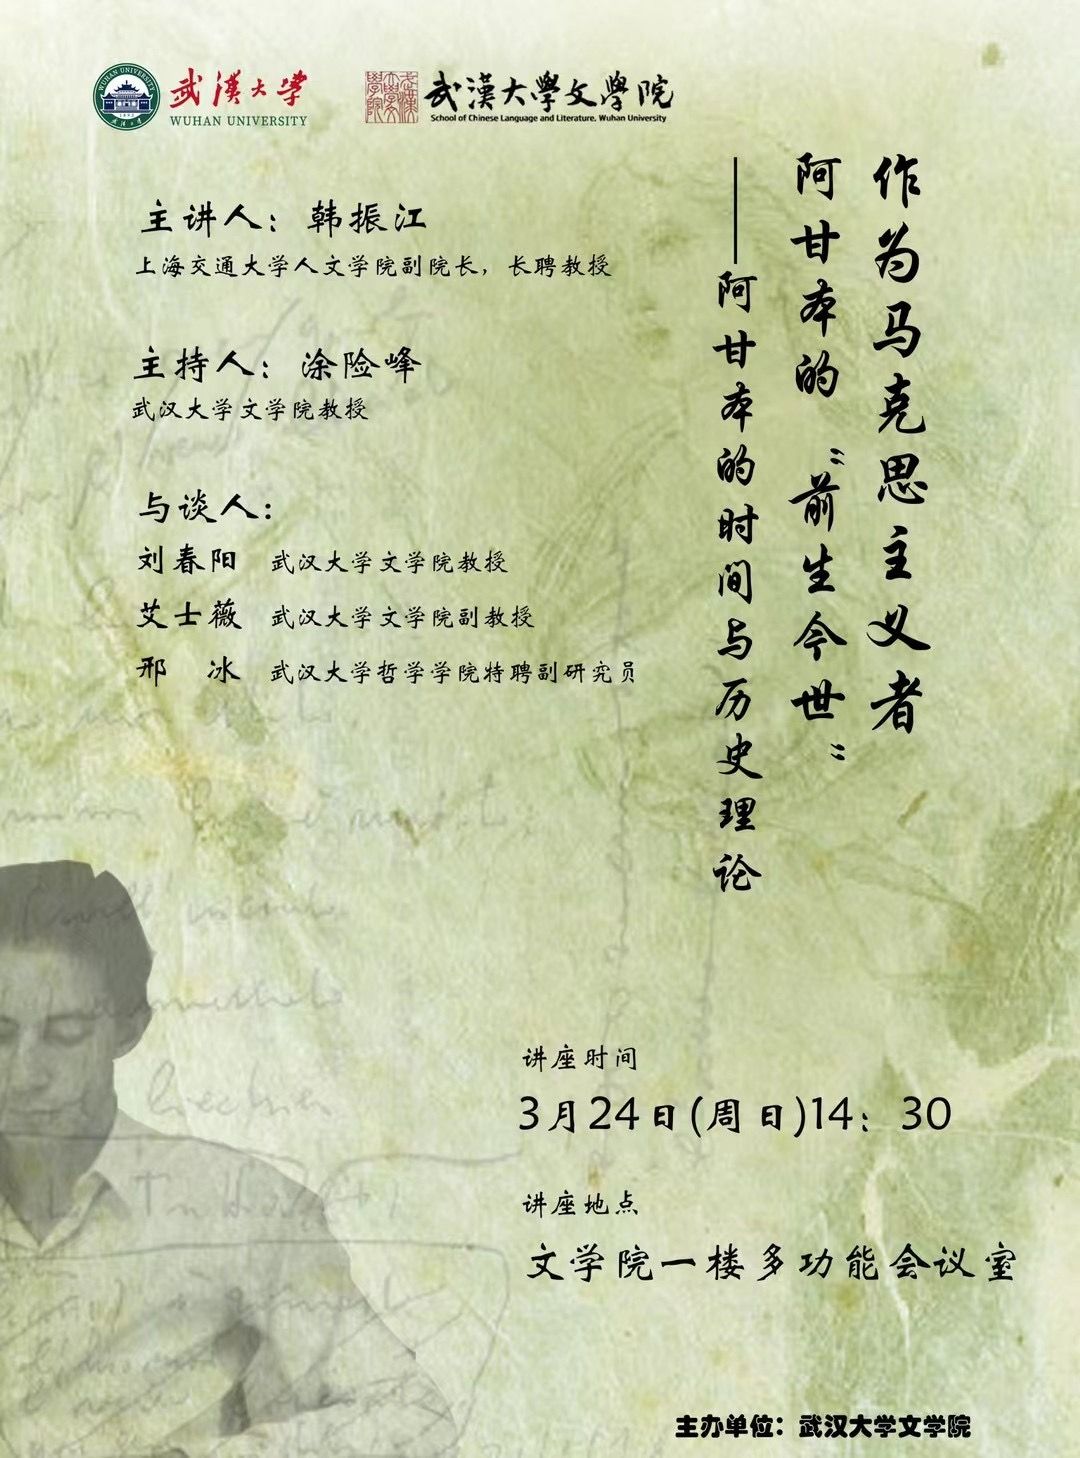 武漢大学
WUHAN UNIVERSITY
武漢大學文學院
School of Chinese Language and Literature, Wuhan University
作为马克思主义者
阿甘本的“前生今世”
——阿甘本的时间与历史理论
主讲人：韩振江
上海交通大学人文学院副院长，长聘教授
主持人：涂险峰
武汉大学文学院教授
与谈人：
刘春阳 武汉大学文学院教授
艾士薇 武汉大学文学院副教授
邢 冰 武汉大学哲学学院特聘副研究员
讲座时间
3月24日(周日)14：30
讲座地点
文学院一楼多功能会议室
主办单位：武汉大学文学院